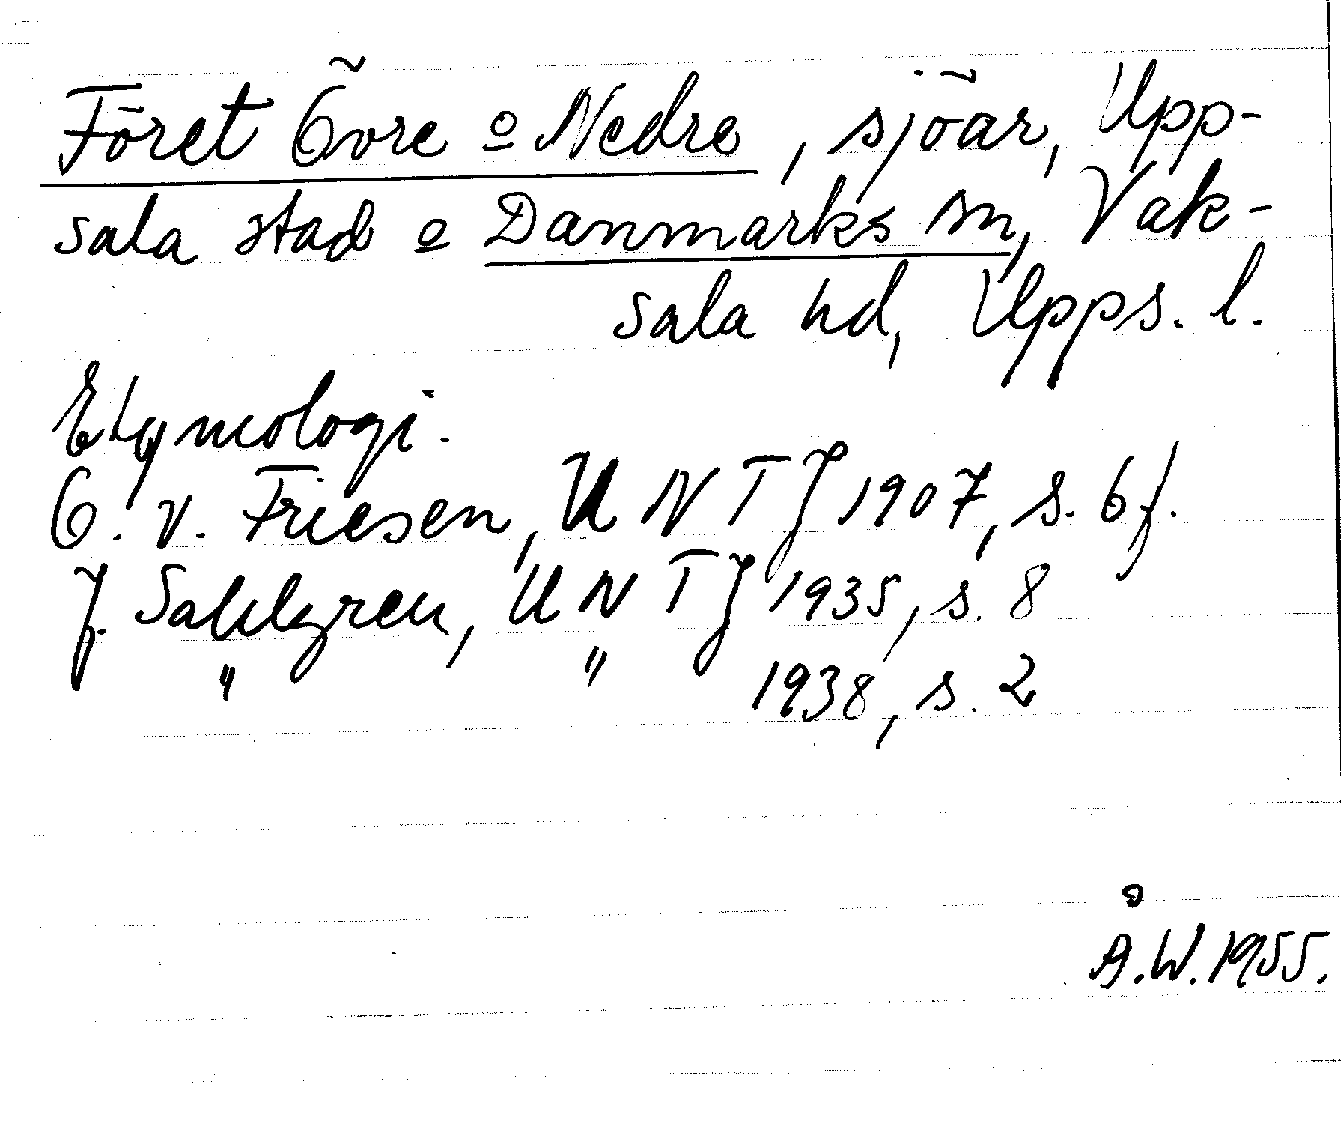 Föret Övre o Nedre, sjöar, Upp-
sala stad o Danmarks sn, Vak-
sala hd, Upps. l.
Etymologi.
O. v. Friesen, UNTJ 1907, s. 6 f.
J. Sahlgren, UNTJ 1935, s. 8
" " 1938, s. 2
Å.W. 1955.